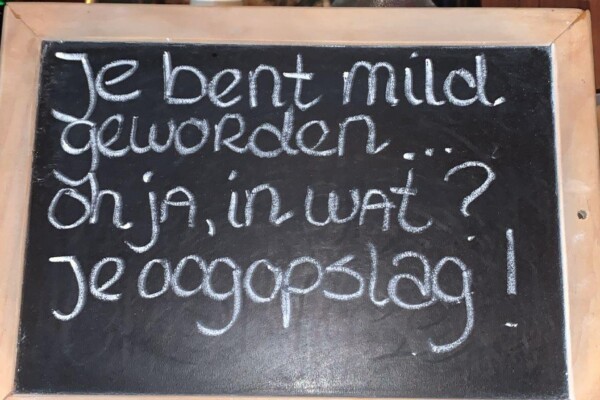 Je bent mild.
geworden...
oh ja, in wat?
je oogopslag!